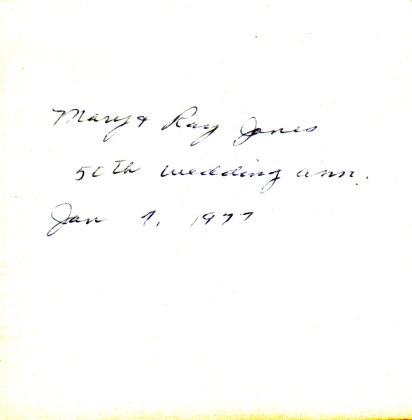 Mary & Ray Jones
50th wedding ann.
Jan 1, 1977